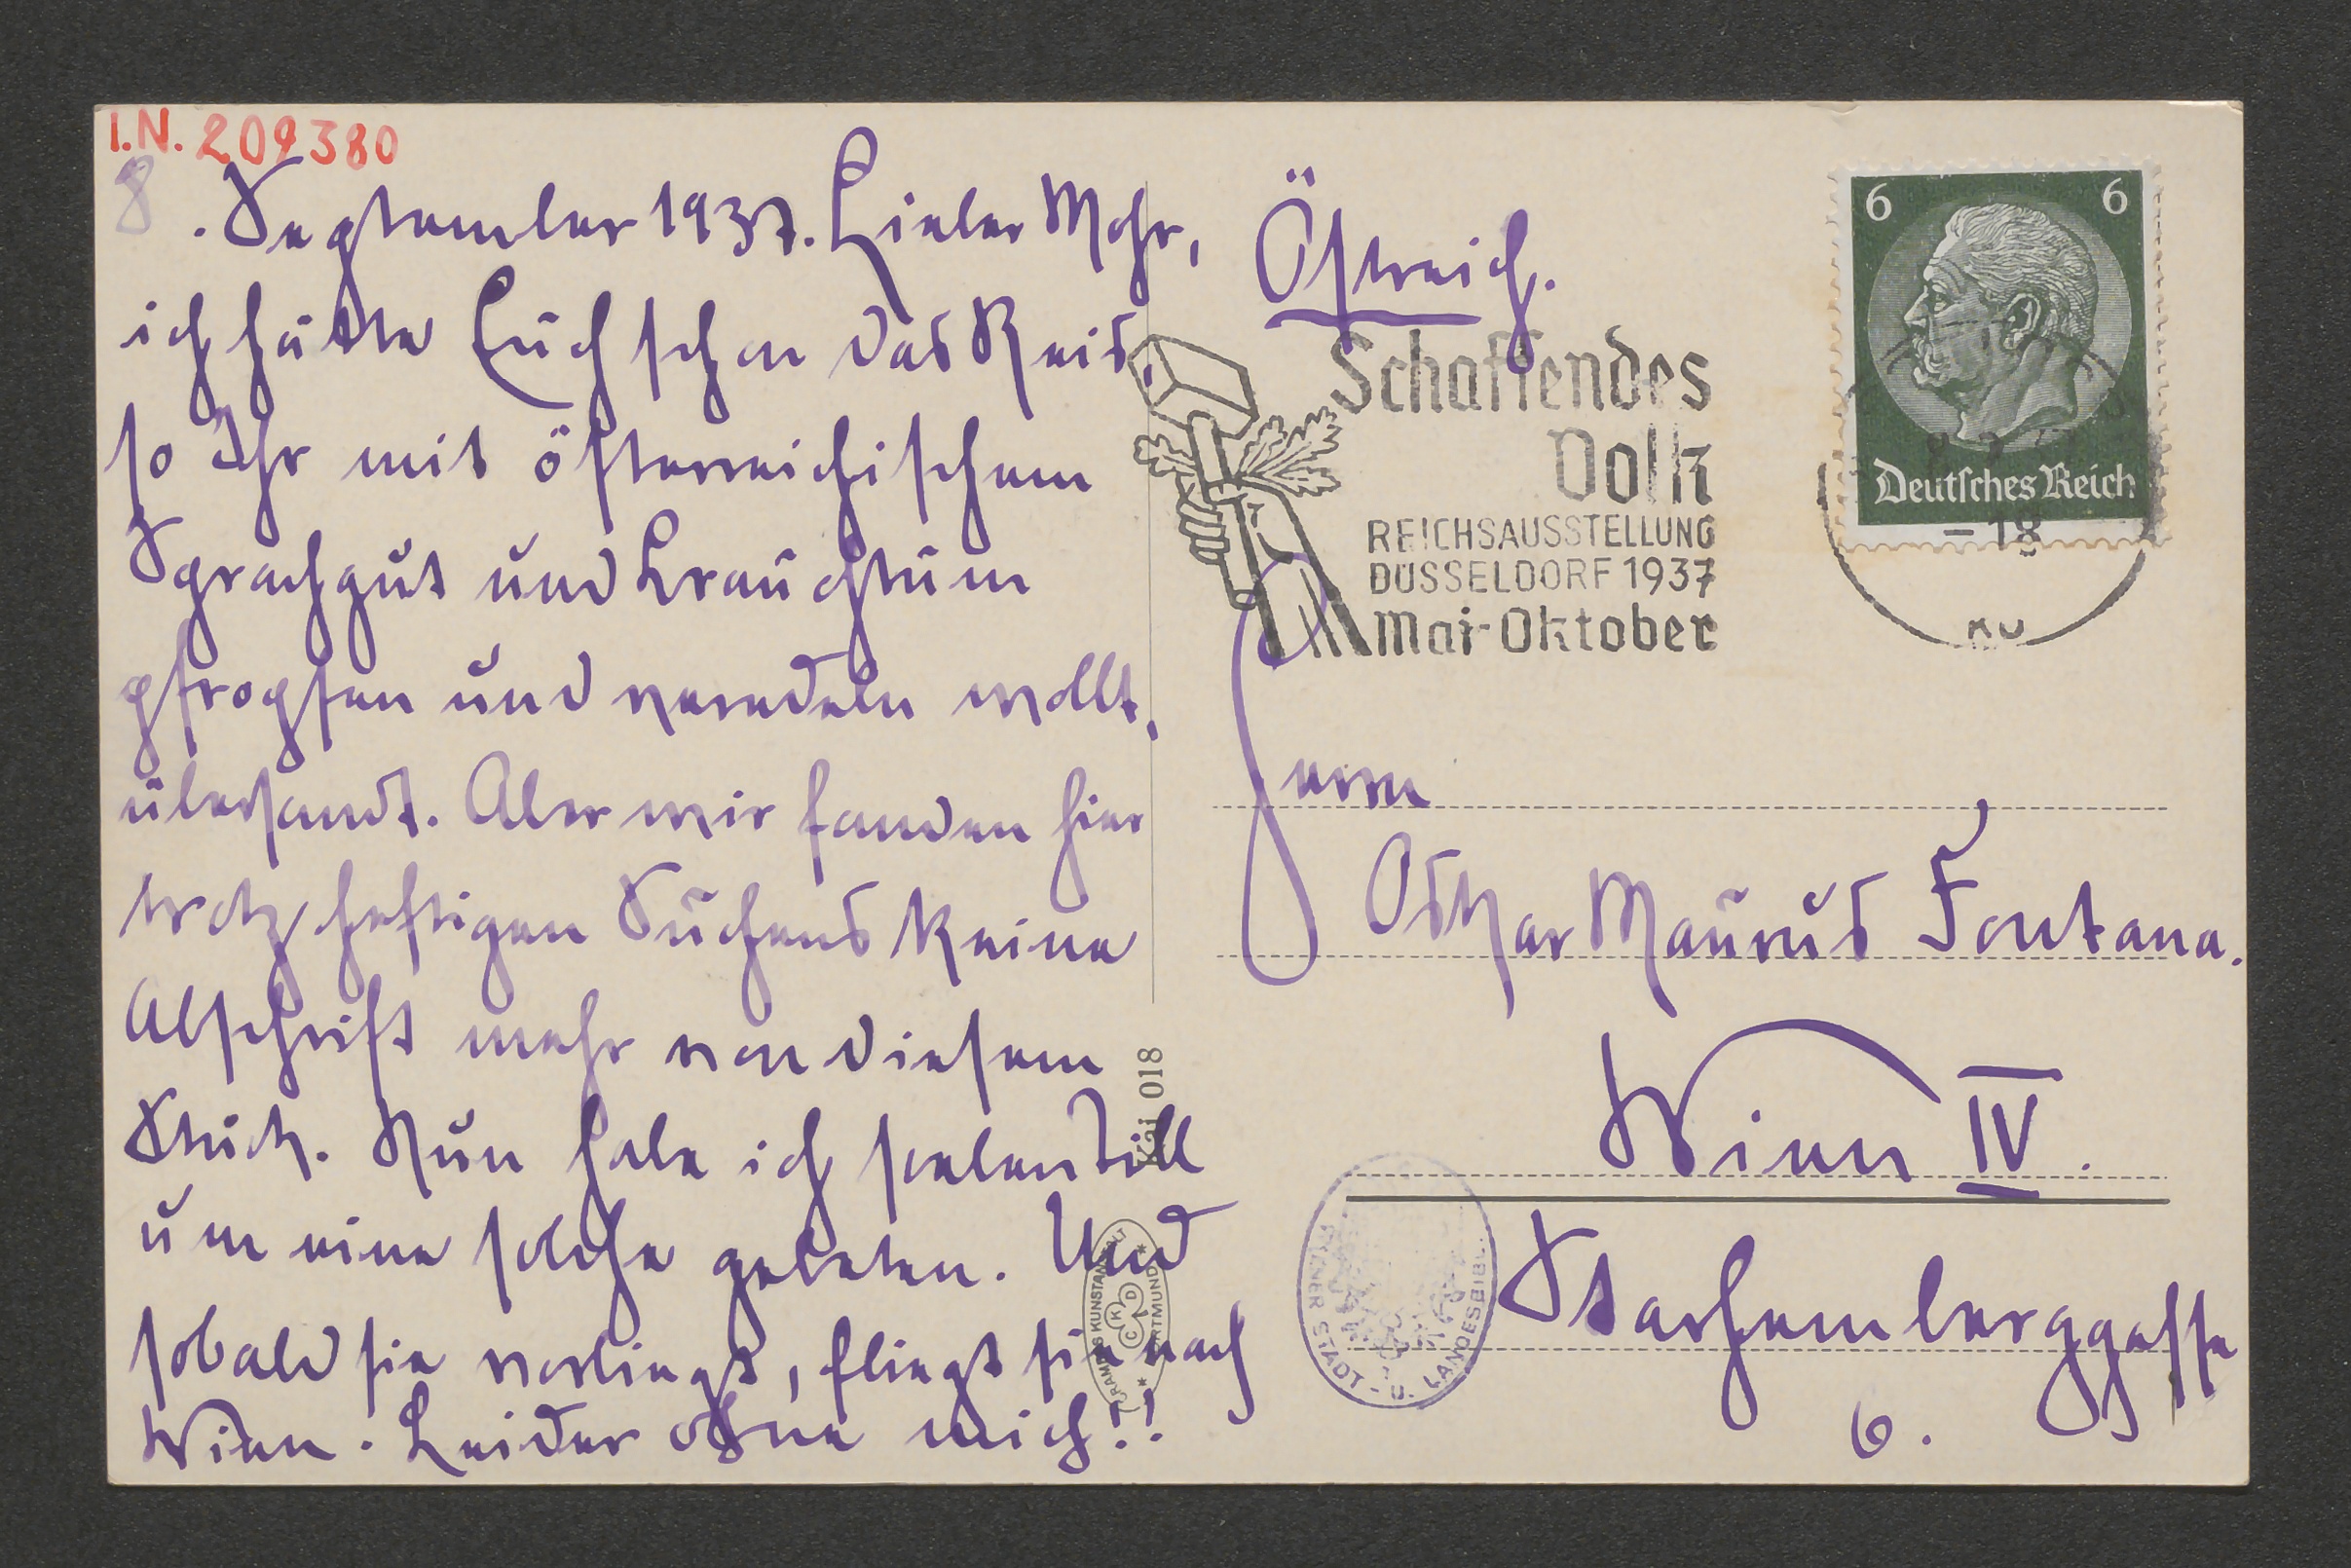 I.N. 209380
8. September 1937. Lieber Mohr,
ich hätte Euch schon das Reis,
so Ihr mit österreichischem
Sprachgut und Brauchtum
pfropfen und veredeln wollt,
übersandt. Aber wir fanden hier
trotz heftigen Suchens keine
Abschrift mehr von diesem
Stück. Nun habe ich soeben Till
um eine solche gebeten. Und
sobald sie vorliegt, fliegt sie nach
Wien. Leider ohne mich!!
Östreich.
6 6
Deutsches Reich
Schaffendes
Volk
REICHSAUSSTELLUNG
DÜSSELDORF 1937
Mai-Oktober
- 18
Herrn
Oskar Maurus Fontana.
Wien IV.
Starhemberggasse
6.
Kai 018
KUNSTANSTALT DORTMUND
CKD
WIENER STADT - U. LANDESBIBL.